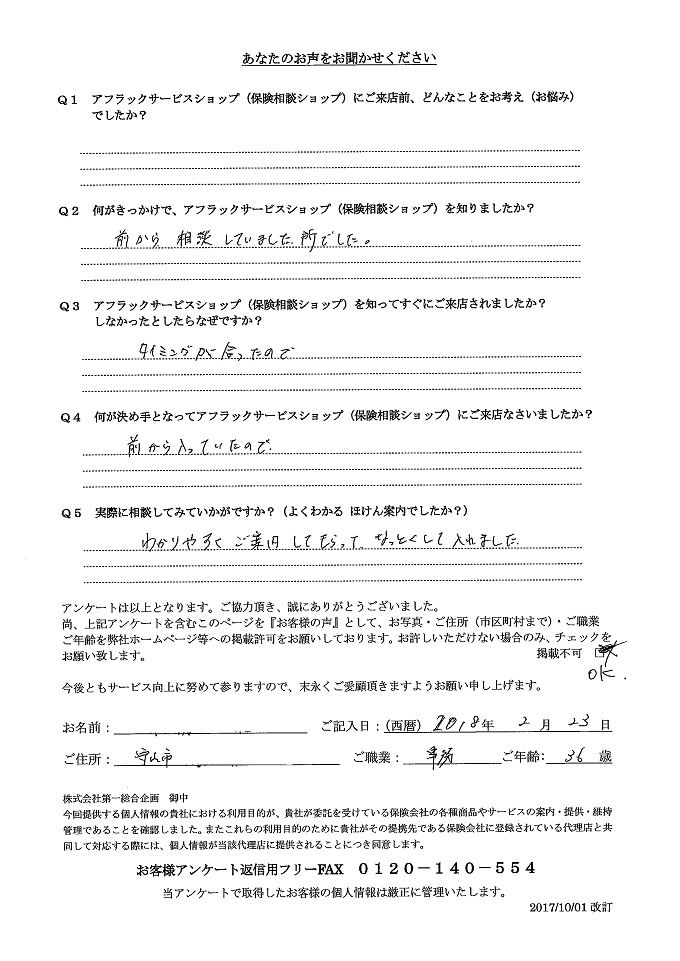 あなたのお声をお聞かせください
Q1 アフラックサービスショップ(保険相談ショップ)にご来店前、どんなことをお考え(お悩み)
でしたか?
Q2 何がきっかけで、アフラックサービスショップ(保険相談ショップ)を知りましたか?
前から 相談 していました 所でした。
Q3 アフラックサービスショップ(保険相談ショップ)を知ってすぐにご来店されましたか?
しなかったとしたらなぜですか?
タイミングが合ったので
Q4 何が決め手となってアフラックサービスショップ(保険相談ショップ)にご来店なさいましたか?
前から入っていたので
Q5 実際に相談してみていかがですか?(よくわかる ほけん案内でしたか?)
わかりやすく ご案内 してもらって なっとくして 入れました.
アンケートは以上となります。ご協力頂き、誠にありがとうございました。
尚、上記アンケートを含むこのページを『お客様の声』として、お写真・ご住所(市区町村まで)・ご職業
ご年齢を弊社ホームページ等への掲載許可をお願いしております。お許しいただけない場合のみ、チェックを
お願い致します。 掲載不可 □
OK.
今後ともサービス向上に努めて参りますので、末永くご愛顧頂きますようお願い申し上げます。
お名前: ご記入日:(西暦) 2018年 2 月 23 日
ご住所: 守山市 ご職業: 事務 ご年齢: 36 歳
株式会社第一総合企画 御中
今回提供する個人情報の貴社における利用目的が、貴社が委託を受けている保険会社の各種商品やサービスの案内・提供・維持
管理であることを確認しました。またこれらの利用目的のために貴社がその提携先である保険会社に登録されている代理店と共
同して対応する際には、個人情報が当該代理店に提供されることにつき同意します。
お客様アンケート返信用フリーFAX 0120-140-554
当アンケートで取得したお客様の個人情報は厳正に管理いたします。
2017/10/01 改訂